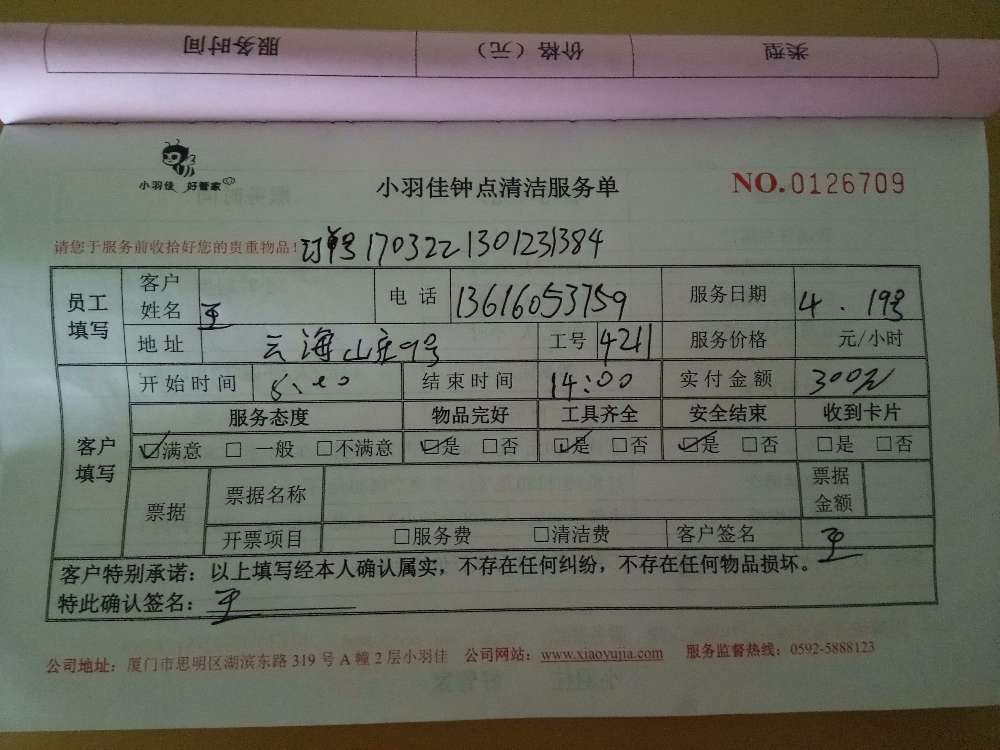 服务时间 价格（元） 类型
小羽佳 好管家
小羽佳钟点清洁服务单
NO.0126709
请您于服务前收拾好您的贵重物品！订单号1703221301231384
员工填写 客户姓名 电话 13616053759 服务日期 4.19号
地址 云海山庄9号 工号 4211 服务价格 元/小时
客户填写 开始时间 结束时间 14:00 实付金额 300元
服务态度 物品完好 工具齐全 安全结束 收到卡片
☑满意 □一般 □不满意 ☑是 □否 ☑是 □否 ☑是 □否 □是 □否
票据 票据名称 票据金额
开票项目 □服务费 □清洁费 客户签名
客户特别承诺：以上填写经本人确认属实，不存在任何纠纷，不存在任何物品损坏。
特此确认签名：
公司地址：厦门市思明区湖滨东路319号A幢2层小羽佳 公司网站：www.xiaoyujia.com 服务监督热线：0592-5888123